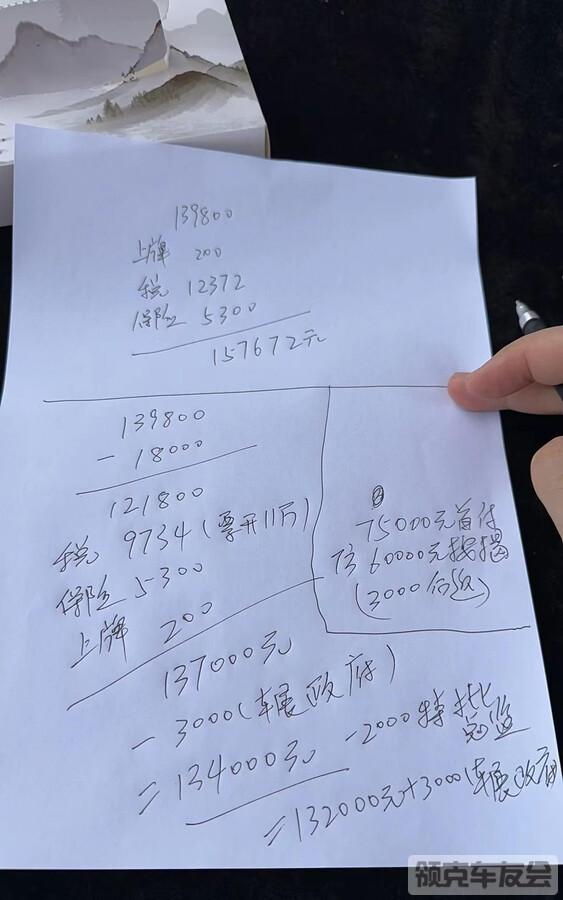 139800
上牌 200
税 12372
保险 5300
157672元
139800
- 18000
121800
税 9734(票开11万)
保险 5300
上牌 200
137000元
- 3000(车展政府)
= 134000元 -2000特批
= 132000元+3000(车展政府
75000元首付
60000元按揭
(3000
领克车友会